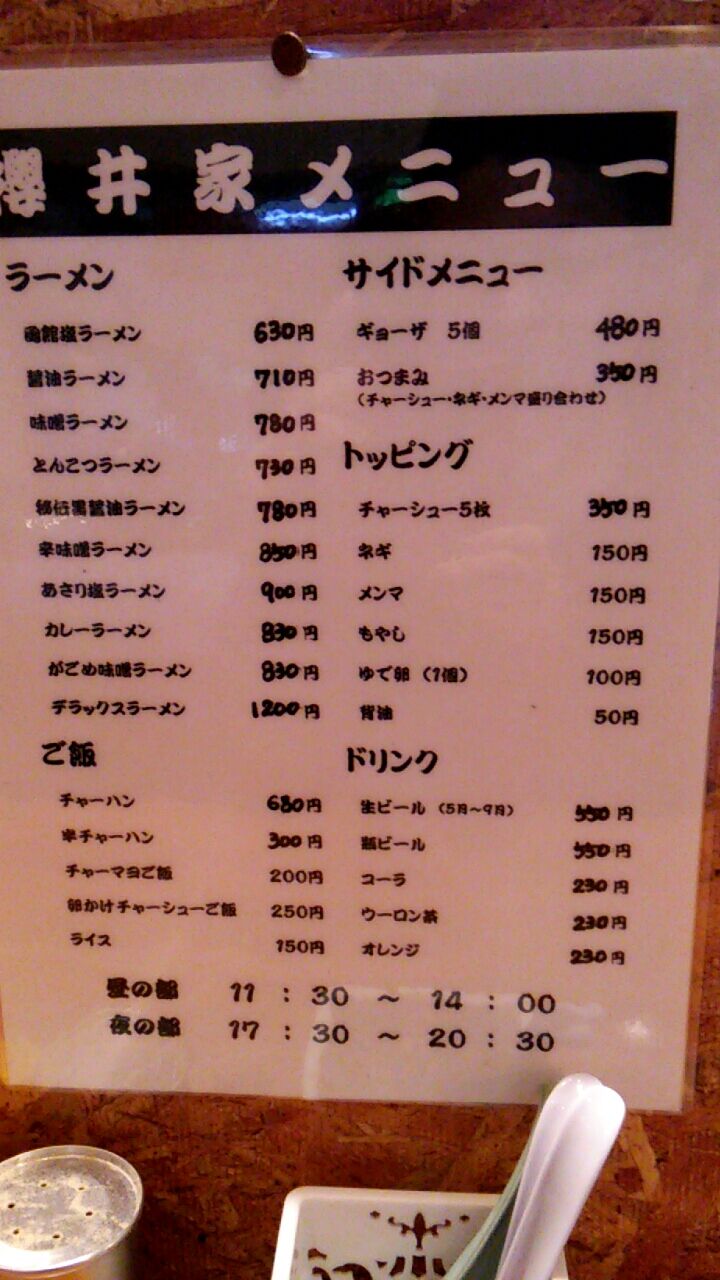 櫻井家メニュー
ラーメン
函館塩ラーメン 630円
醤油ラーメン 710円
味噌ラーメン 780円
とんこつラーメン 730円
秘伝黒醤油ラーメン 780円
辛味噌ラーメン 850円
あさり塩ラーメン 900円
カレーラーメン 830円
がごめ味噌ラーメン 830円
デラックスラーメン 1200円
ご飯
チャーハン 680円
半チャーハン 300円
チャーマヨご飯 200円
卵かけチャーシューご飯 250円
ライス 150円
サイドメニュー
ギョーザ 5個 480円
おつまみ 350円
（チャーシュー・ネギ・メンマ盛り合わせ）
トッピング
チャーシュー5枚 350円
ネギ 150円
メンマ 150円
もやし 150円
ゆで卵（1個） 100円
背油 50円
ドリンク
生ビール（5月～9月） 550円
瓶ビール 550円
コーラ 230円
ウーロン茶 230円
オレンジ 230円
昼の部 11：30 ～ 14：00
夜の部 17：30 ～ 20：30